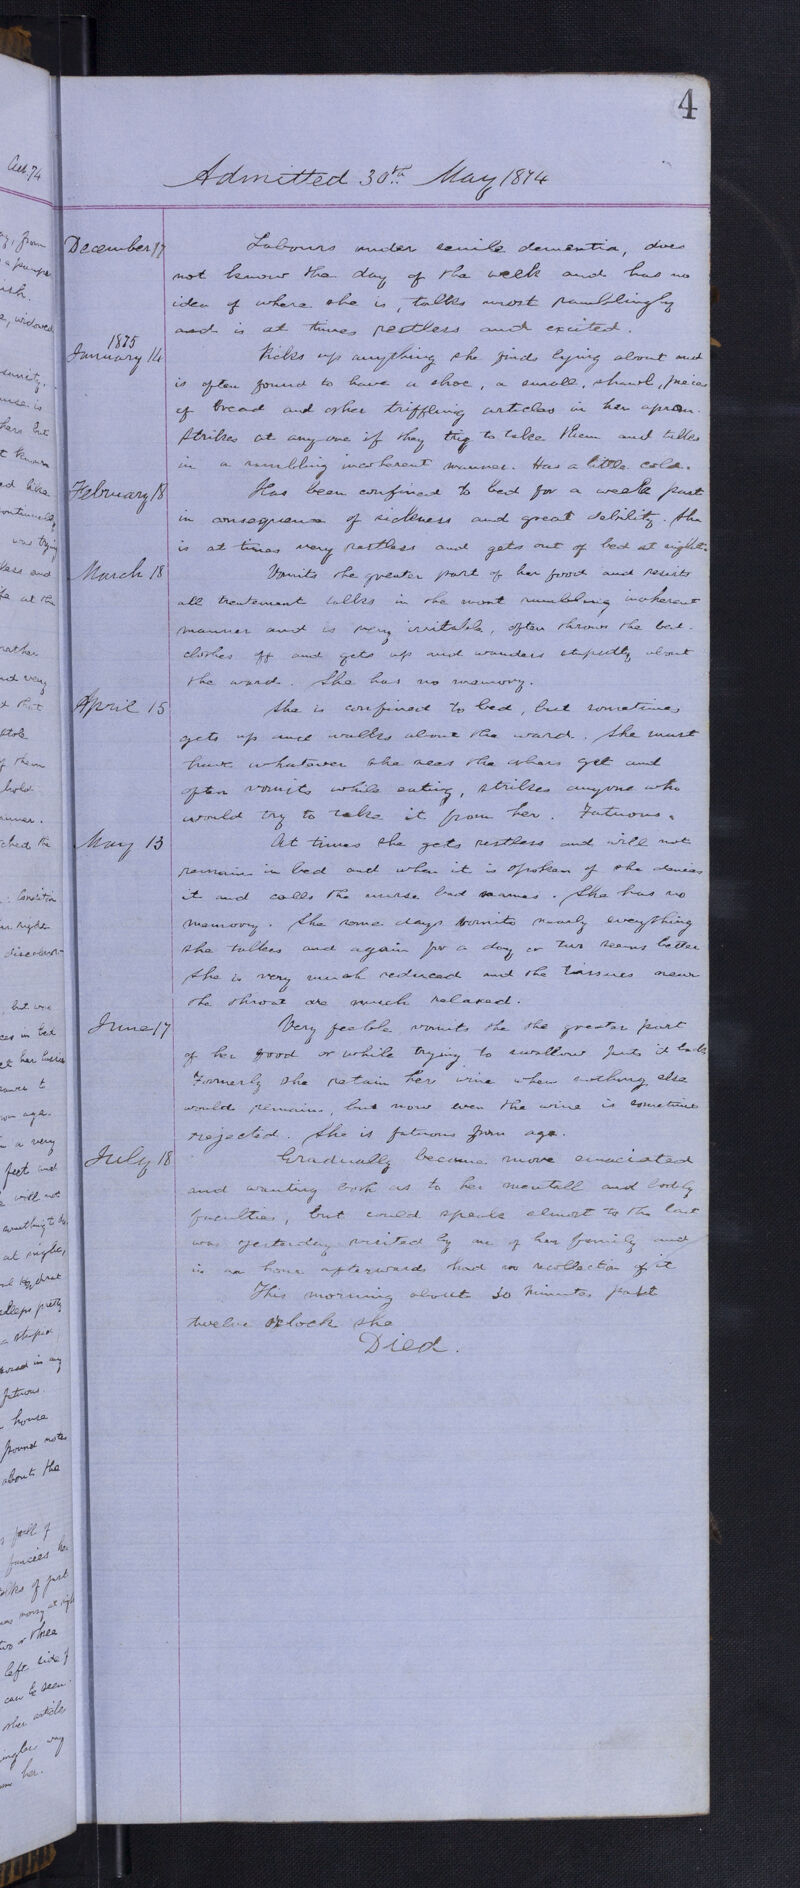 4
Admitted 30th May 1874
December 17 Labours under senile dementia, does
not know the day of the week and has no
idea of where she is, talks most ramblingly
and is at times restless and excited.
1875
January 14 Picks up anything she finds lying about and
is often found to have a shoe, a small shawl, pieces
of bread and other triffling articles in her apron.
Strikes at anyone if they try to take them and talks
in a rambling incoherent manner. Has a little cold.
February 18 Has been confined to bed for a week past
in consequence of sickness and great debility. She
is at times very restless and gets out of bed at night.
March 18 Vomits the greater part of her food and resists
all treatement talks in the most rambling incoherent
manner and is very irritable, often throws the bed-
clothes off and gets up and wanders stupidly about
the ward. She has no memory.
April 15 She is confined to bed, but sometimes
gets up and walks about the ward. She must
have whatever she sees the others get and
often vomits while eating, strikes anyone who
would try to take it from her. Fatuous.
May 13 At times she gets restless and will not
remain in bed and when it is spoken of she denies
it and calls the nurse bad names. She has no
memory. She some days vomits nearly everything
she takes and again for a day or two seems better
She is very much reduced and the tissues near
the throat are much relaxed.
June 17 Very feeble vomits the the greater part
of her food or while trying to swallow puts it back
Formerly she retain her wine when nothing else
would remain, but now even the wine is sometimes
rejected. She is fatuous from age.
July 18 Gradually became more emaciated
and wanting both as to her mentall and bodily
faculties, but could speak almost to the last
was yesterday visited by one of her family and
in an hour afterwards had no recollection of it
This morning about 30 minutes past
twelve oclock she
Died.